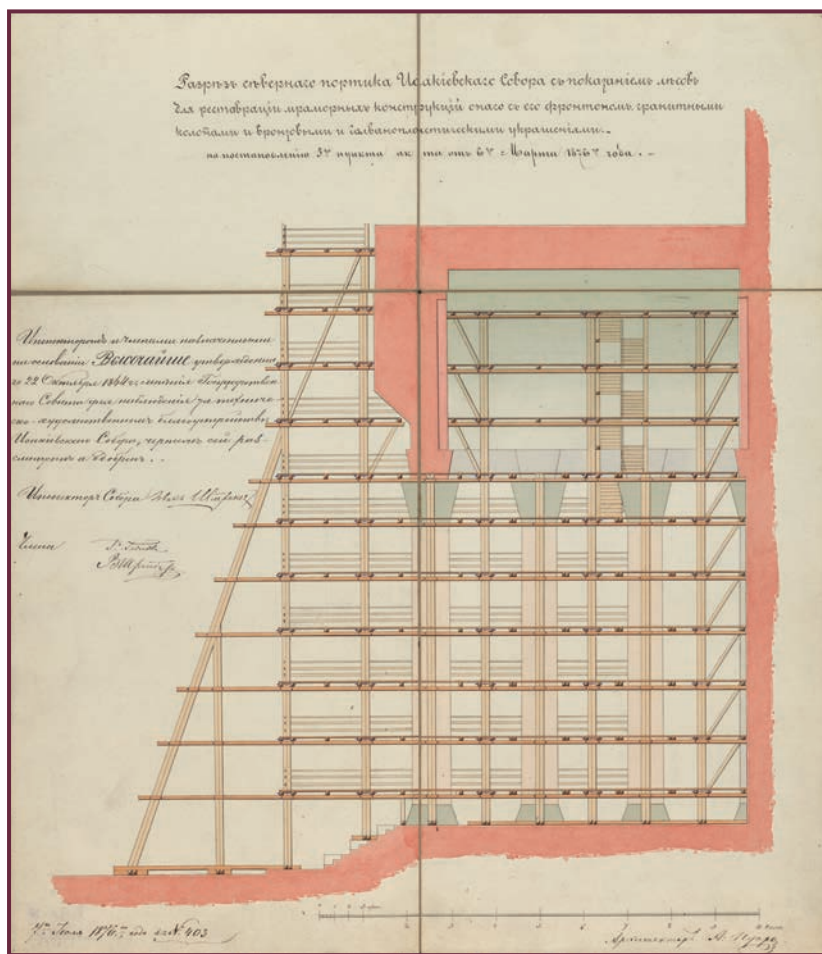 Разрѣзъ сѣвернаго портика Исакіевскаго Собора съ показаніемъ лѣсовъ
для реставраціи мраморныхъ конструкцій онаго съ его фронтономъ, гранитными
колоннами и бронзовыми и гальванопластическими украшеніями. –
по постановленію 5го пункта акта отъ 6го Марта 1876го года. –
Инспекторомъ и Членами назначенными
на основаніи Высочайше утвержденна
го 22 Октября 1864 г. мнѣнія Государствен
наго Совѣта для наблюденія за техниче
ско-художественнымъ благоустройствомъ
Исакіевскаго Собора, чертежъ сей раз-
смотренъ и одобренъ. –
Инспекторъ Собора
Члены
Іюля 1876го года за № 403
Архитекторъ